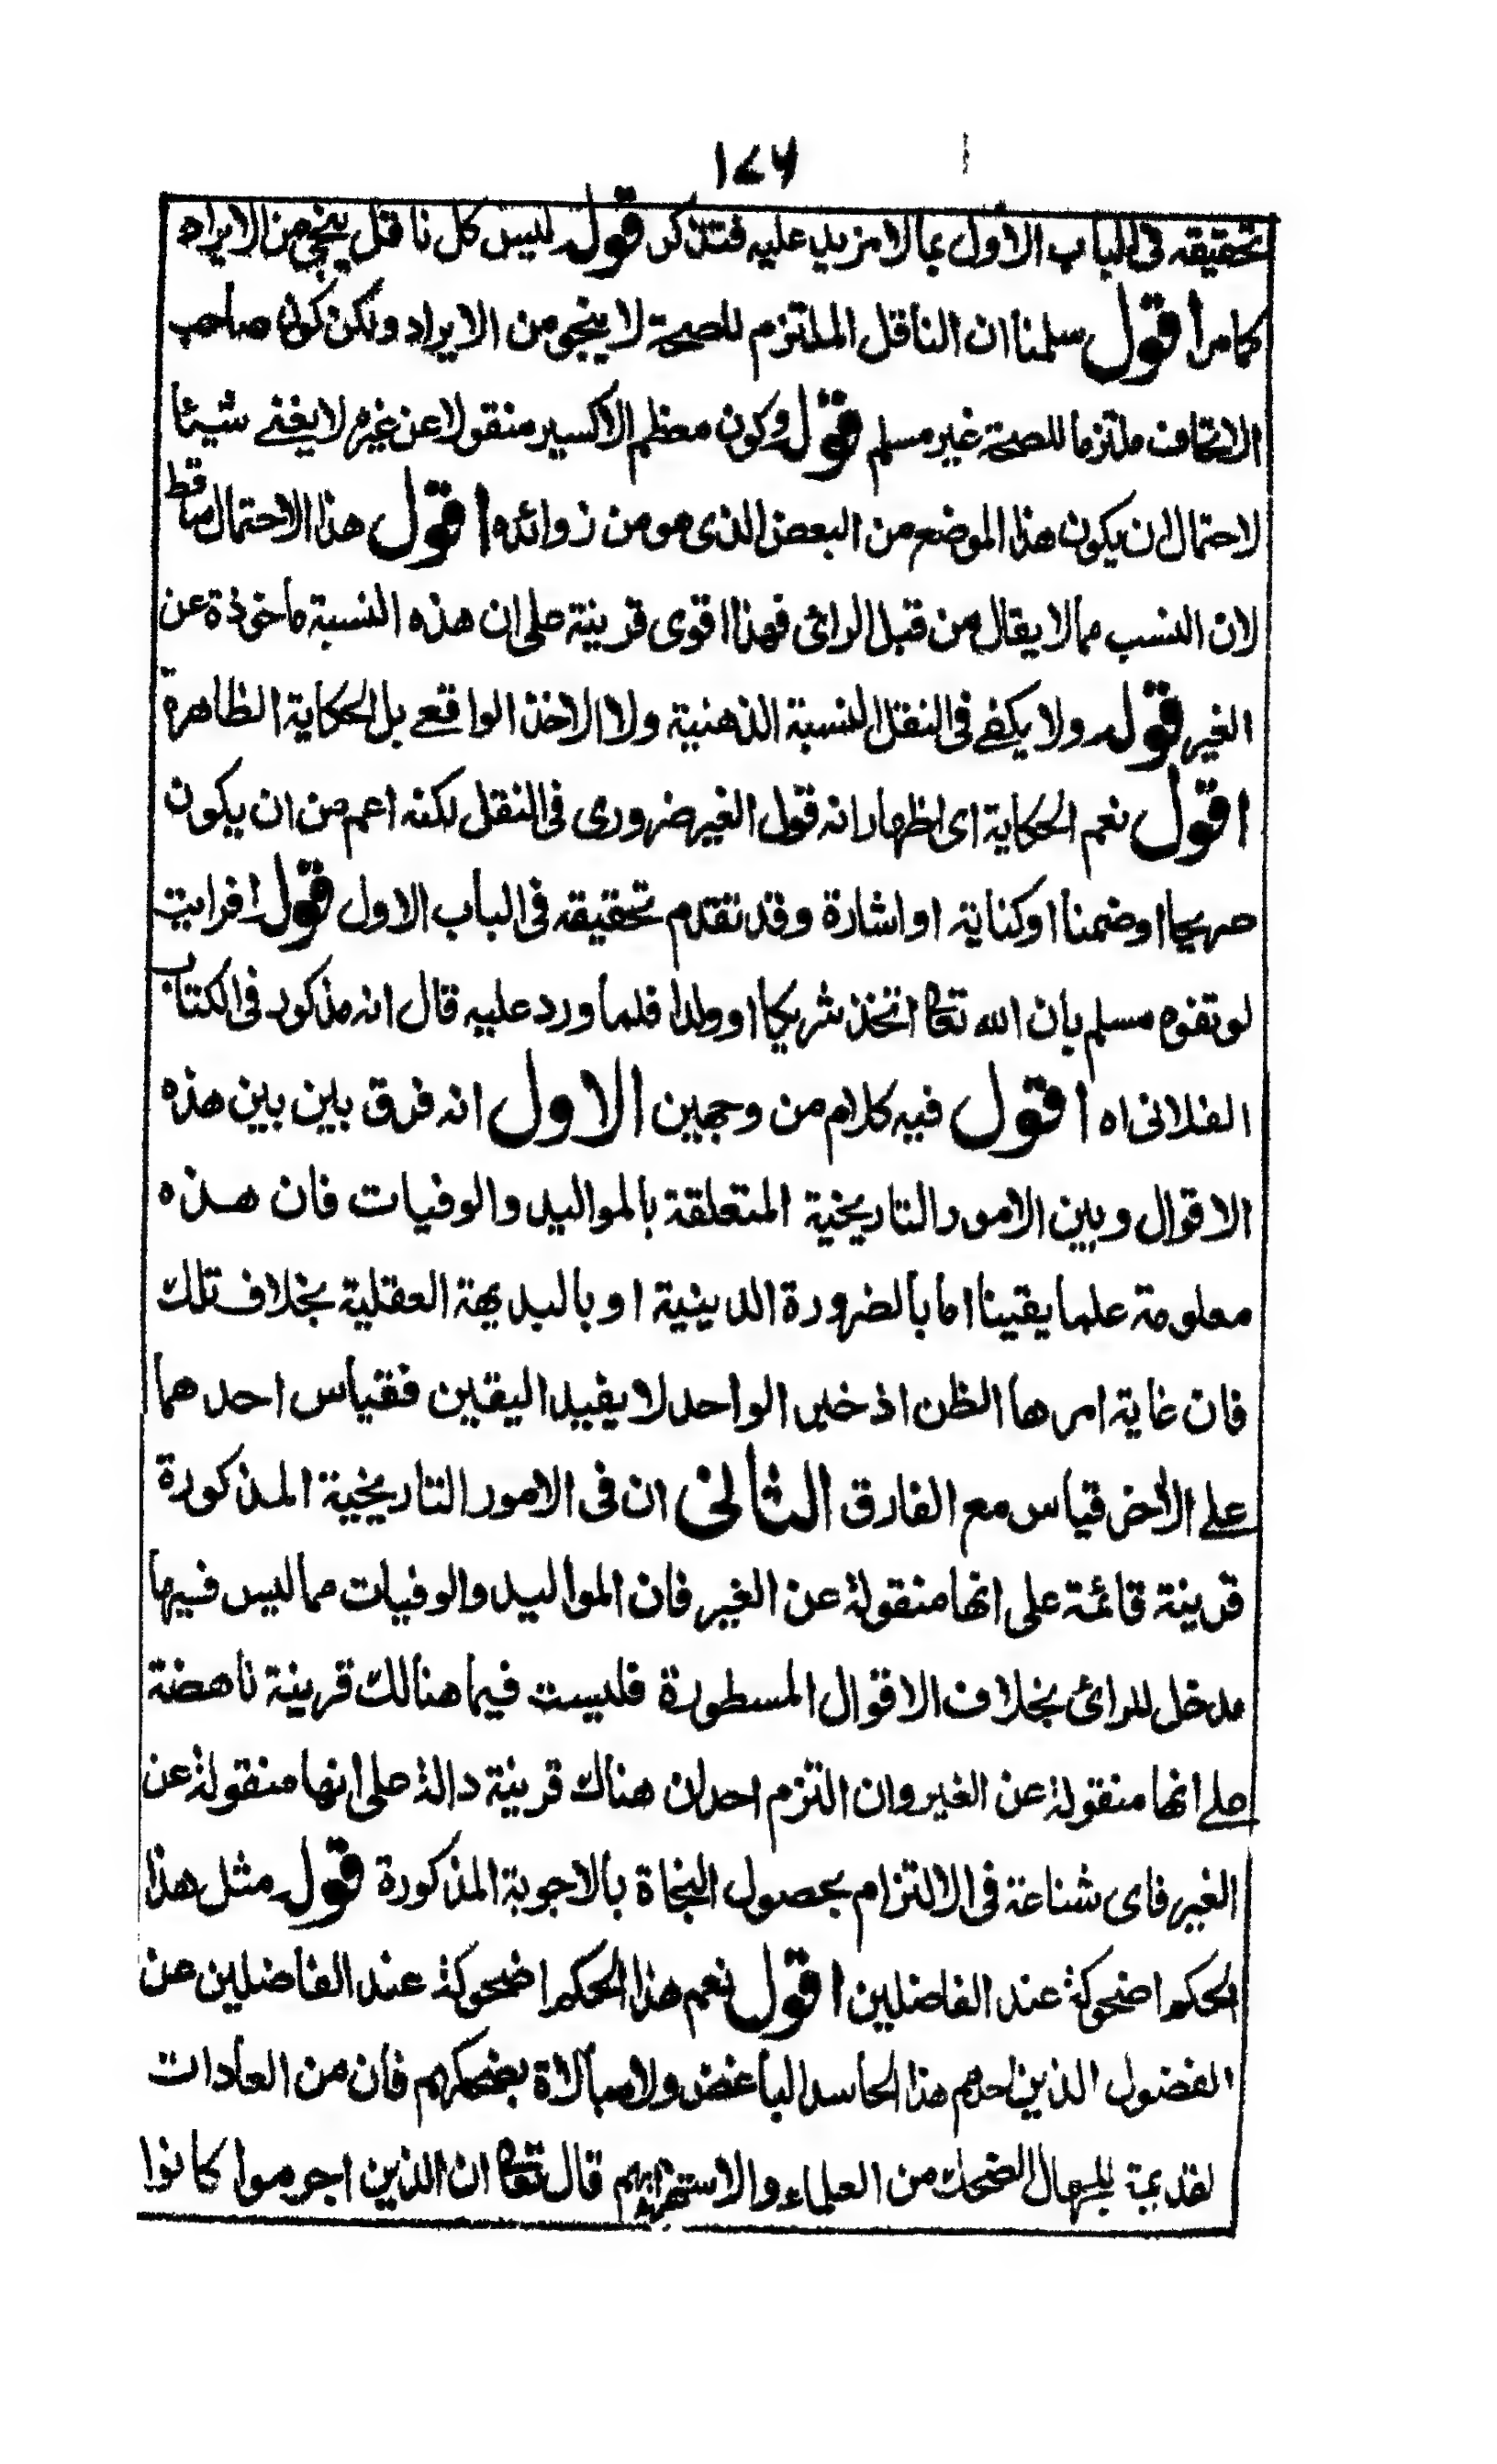 ١٧٦
تحقيقه فى الباب الاول بما لا مزيد عليه فتذكر قوله ليس كل ناقل ينجى من الايراد
كما مر اقول سلمنا ان الناقل الملتزم للصحة لا ينجو من الايراد ولكن كون صاحب
الاتحاف ملتزما للصحة غير مسلم قوله وكون معظم الاكسير منقولا عن غيره لا يغنے شيئا
لاحتمال ان يكون هذا الموضع من البعض الذى هو من زوائده اقول هذا الاحتمال ساقط
لان النسب مما لا يقال من قبل الرائ فهذا اقوى قرينة على ان هذه النسبة ماخوذة عن
الغير قوله ولا يكفے فى النقل النسبة الذهنية ولا الاخذ الواقعے بل الحكاية الظاهرة
اقول نعم الحكاية اى اظهار انه قول الغير ضرورى فى النقل لكنه اعم من ان يكون
صريحا او ضمنا او كناية او اشارة وقد تقدم تحقيقه فى الباب الاول قوله افرايت
لو تفوه مسلم بان الله تعا اتخذ شريكا او ولدا فلما ورد عليه قال انه مذكور فى الكتاب
الفلانى اه اقول فيه كلام من وجهين الاول انه فرق بين بين هذه
الاقوال وبين الامور التاريخية المتعلقة بالمواليد والوفيات فان هذه
معلومة علما يقينا اما بالضرورة الدينية او بالبديهة العقلية بخلاف تلك
فان غاية امرها الظن اذ خبر الواحد لا يفيد اليقين فقياس احدهما
علے الأخر قياس مع الفارق الثانى ان فى الامور التاريخية المذكورة
قرينة قائمة على انها منقولة عن الغير فان المواليد والوفيات مما ليس فيها
مدخل للرائ بخلاف الاقوال المسطورة فليست فيما هنالك قرينة ناهضة
علے انها منقولة عن الغير وان التزم احد ان هناك قرينة دالة على انها منقولة عن
الغير فاى شناعة فى الالتزام بحصول النجاة بالاجوبة المذكورة قوله مثل هذا
الحكم اضحوكة عند الفاضلين اقول نعم هذا الحكم اضحوكة عند الفاضلين عن
الفضول الذين احدهم هذا الحاسد الباغض ولا مبالاة بضحكهم فان من العادات
لقديمة للجهال الضحك من العلماء والاستهزاء بهم قال تعا ان الذين اجرموا كانوا